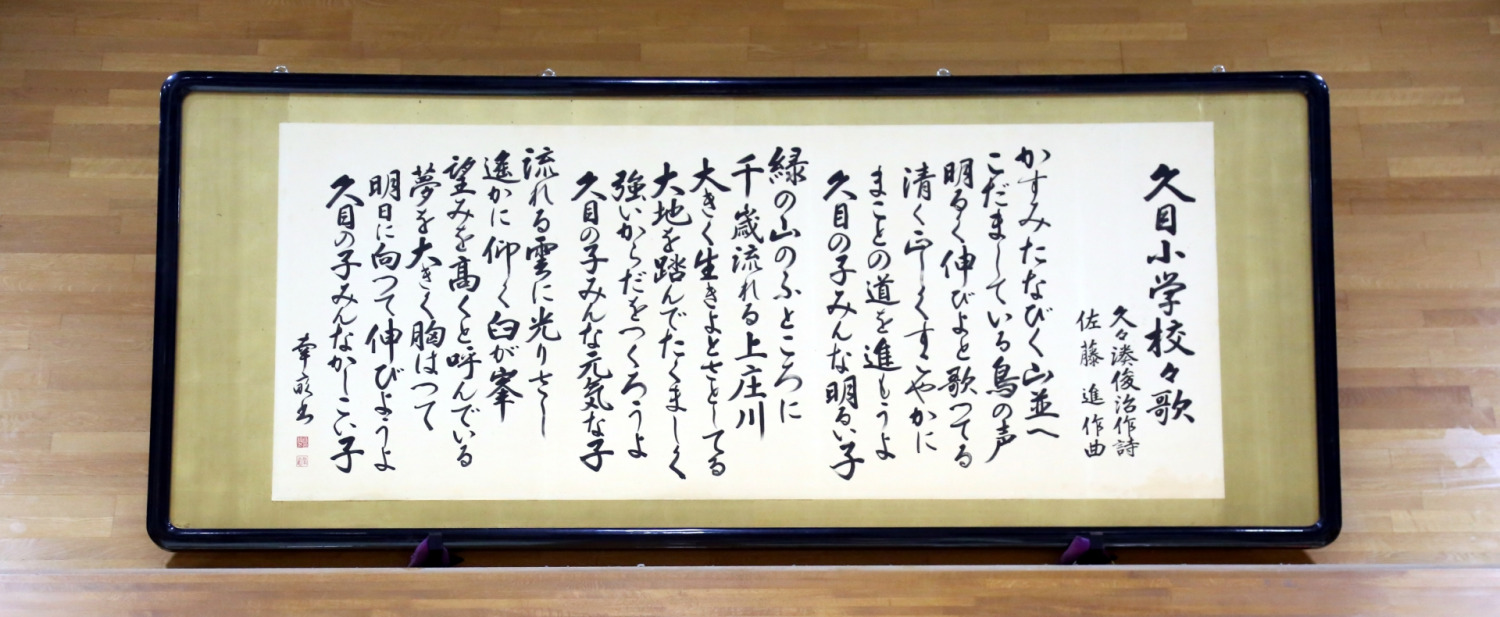 久目小学校々歌
久々湊俊治作詩
佐藤進作曲
かすみたなびく山並へ
こだましている鳥の声
明るく伸びよと歌つてる
清く正しくすこやかに
まことの道を進もうよ
久目の子みんな明るい子
緑の山のふところに
千歳流れる上庄川
大きく生きよとさとしてる
大地を踏んでたくましく
強いからだをつくろうよ
久目の子みんな元気な子
流れる雲に光りさし
遙かに仰ぐ臼が峯
望みを高くと呼んでいる
夢を大きく胸はつて
明日に向つて伸びようよ
久目の子みんなかしこい子